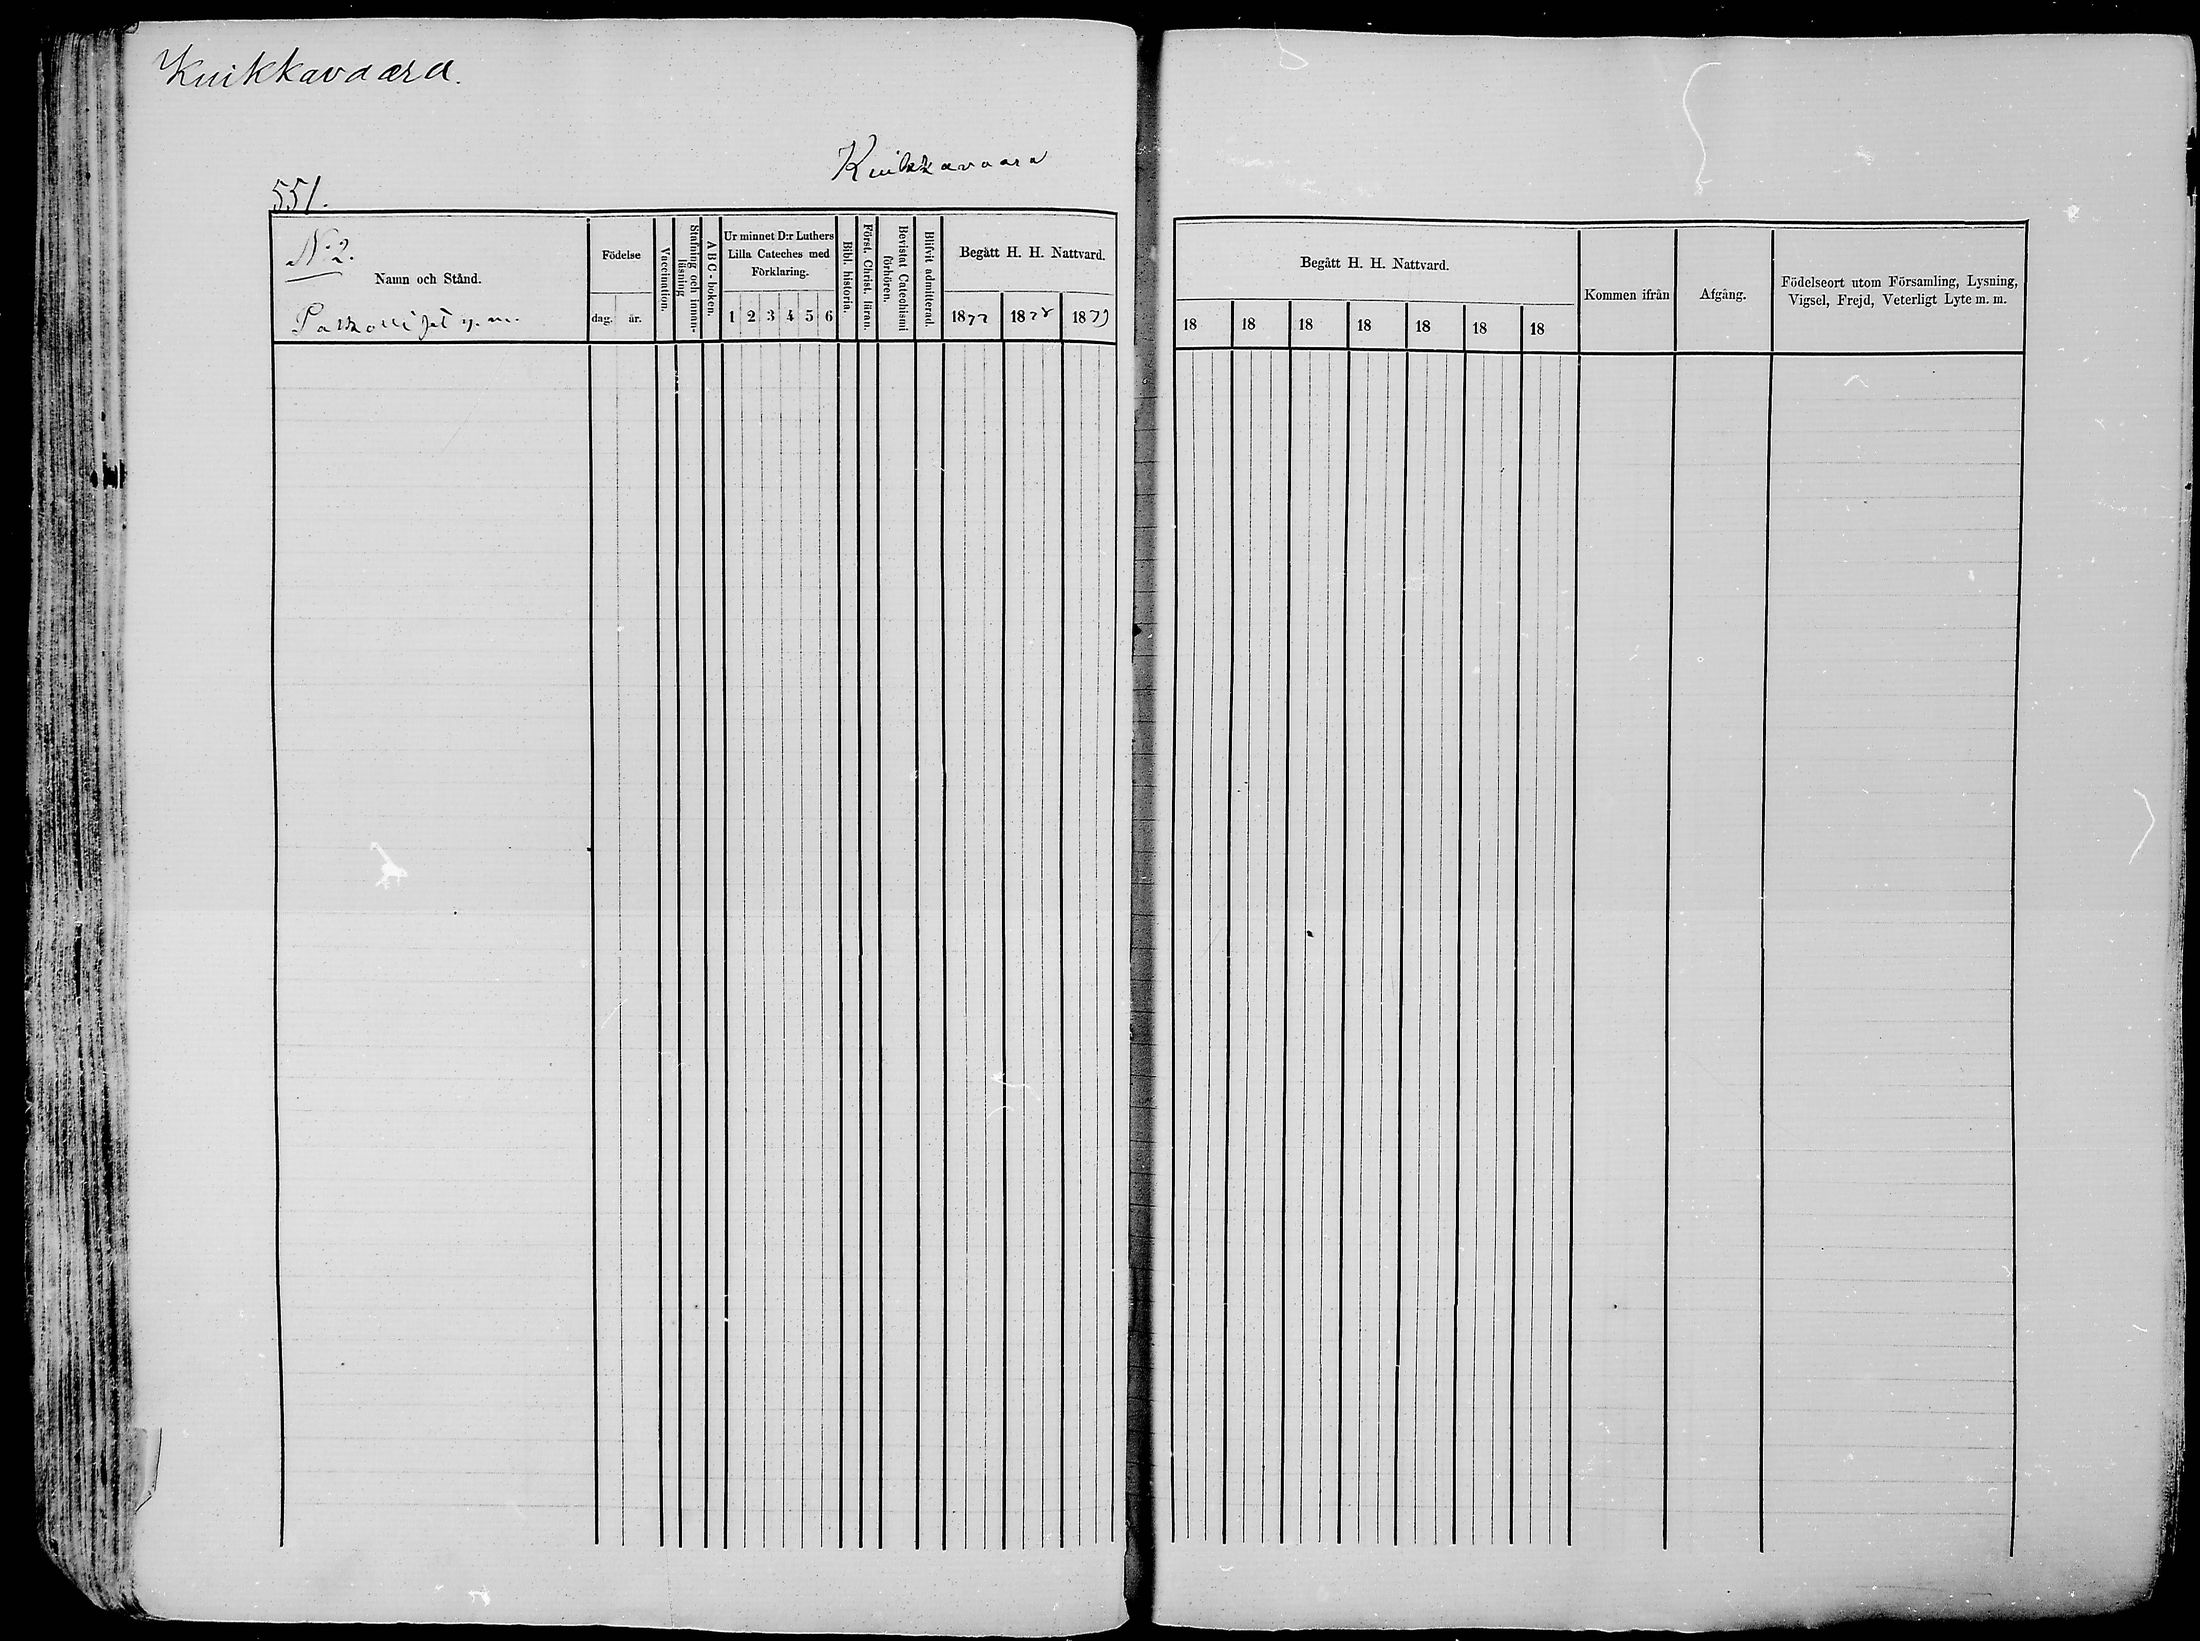 Kuikkavaara.
Kuikkavaara
551.
No 2.
Namn och Stånd.
Födelse
dag. år.
Vaccination.
Stafning och innan-
läsning
ABC-boken.
Ur minnet D:r Luthers
Lilla Cateches med
Förklaring.
1 2 3 4 5 6
Bibl. historia.
Först. Christ. läran.
Bevistat Catechismi
förhören.
Blifvit admitterad.
Begått H. H. Nattvard.
1877 1878 1879
Begått H. H. Nattvard.
18 18 18 18 18 18 18
Kommen ifrån
Afgång.
Födelseort utom Församling, Lysning,
Vigsel, Frejd, Veterligt Lyte m. m.